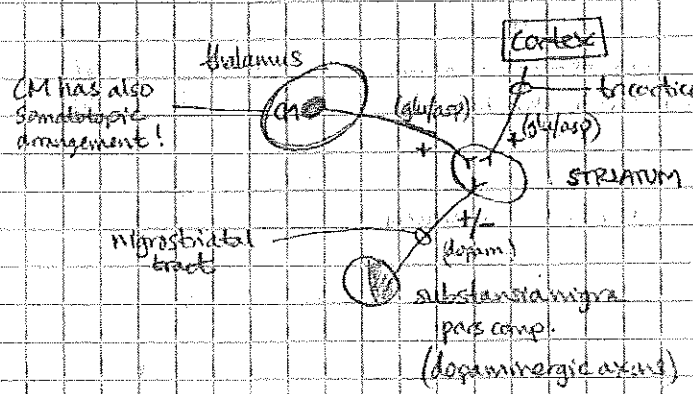 Cortex
thalamus
CM has also
somatotopic
arrangement!
CM
(glu/asp)
+
tricortica
+(glu/asp)
STRIATUM
+/-
(dopam)
nigrostriatal
tract
substansia nigra
pars comp.
(dopaminergic axons)